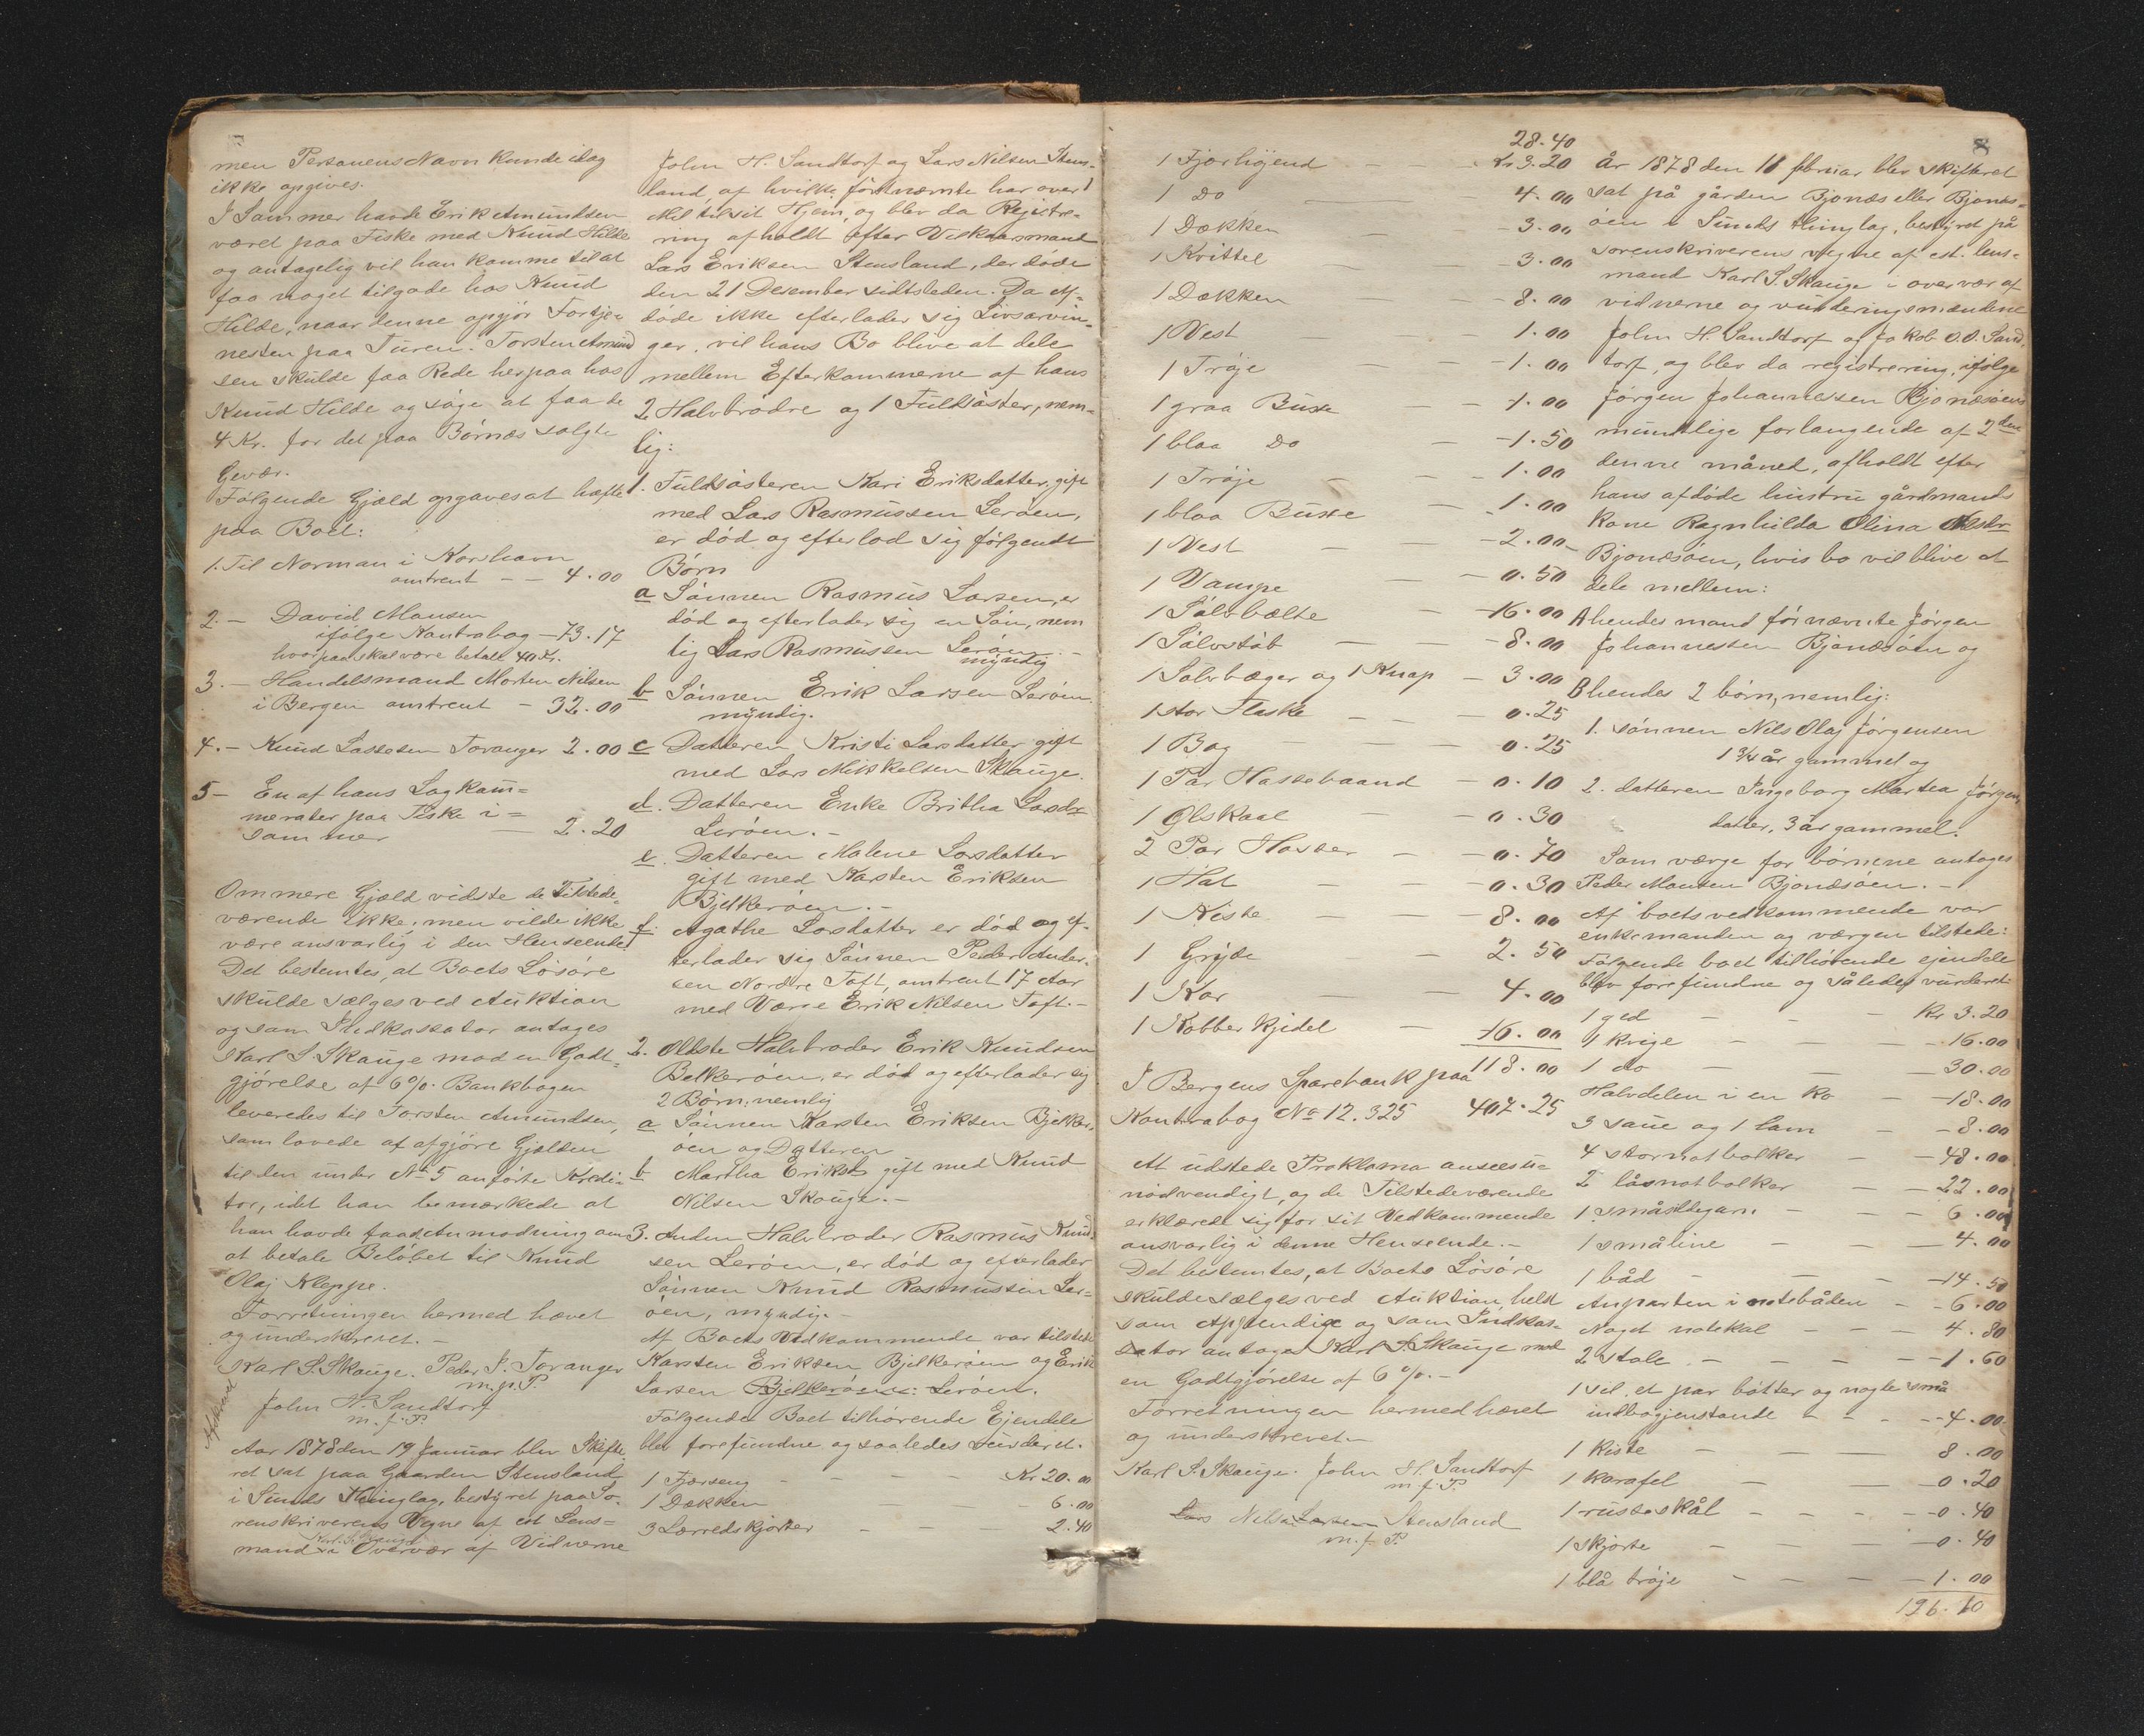 men Personens Navn kunde idag
ikke opgives.
I Sommer havde Erik Amundsen
været paa Fiske med Knud Hilde
og antagelig vil han komme til at
faa noget tilgode hos Knud
Hilde, naar denne opgjør Fortje-
nesten paa Turen. Torsten Amund
sen skulde faa Rede herpaa hos
Knud Hilde og søge at faa de
4 Kr. for det paa Børnæs solgte
Gevær.
Følgende Gjæld opgaves at hæfte
paa Boet:
1. Til Norman i Korshavn
omtrent - - 4.00
2. - David Monsen
ifølge Kontrabog - 73.17
hvorpaa skal være betalt 40 Kr.
3. - Handelsmand Morten Nilsen
i Bergen omtrent - 32.00
4. - Knud Lassesen Toranger 2.00
5 - En af hans Lagkam=
merater paa Fiske i =
sommer - 2.20
Om mere Gjæld vidste de Tilstede-
værende ikke, men vilde ikke
være ansvarlig i den Henseende!
Det bestemtes, at Boets Løsøre
skulde sælges ved Auktion
og som Indkassator antages
Karl S. Skauge mod en Godt-
gjørelse af 6%. Bankbogen
leveredes til Torsten Amundsen,
som lovede at afgjøre Gjælden
til den under No 5 anførte Kredi-
tor, idet han bemærkede at
han havde faaet Anmodning om
at betale Beløbet til Knud
Olaj Kleppe.
Forretningen hermed hævet
og underskrevet. -
Karl S. Skauge. Peder J. Toranger
m. p. P.
John H. Sandtorf
m. f. P.
Afskrevet
Aar 1878 den 19 Januar blev Skifte
ret sat paa Gaarden Stensland
i Sunds Thinglag, bestyret paa So-
renskriverens Vegne af cst Lens=
Karl S. Skauge
mand i Overvær af Vidnerne
John H. Sandtorf og Lars Nilsen Stens-
land, af hvilke førstnævnte har over 1
Mil til sit Hjem, og blev da Registre-
ring afholdt efter Velkaarsmand
Lars Eriksen Stensland, der døde
den 21 Desember sidstleden. Da Af-
døde ikke efterlader sig Livsarvin-
ger, vil hans Bo blive at dele
mellem Efterkommerne af hans
2 Halvbrødre og 1 Fuldsøster, nem-
lig:
1. Fuldsøsteren Kari Eriksdatter, gift
med Lars Rasmussen Lerøen,
er død og efterlod sig følgende
Børn
a Sønnen Rasmus Larsen, er
død og efterlader sig en Søn, nem
lig Lars Rasmussen Lerøen. -
myndig
b Sønnen Erik Larsen Lerøen
myndig.
c Datteren Kristi Larsdatter gift
med Lars Mikkelsen Skauge.
d. Datteren Enke Britha Larsdr
Lerøen. -
e. Datteren Malene Larsdatter
gift med Karsten Eriksen
Bjelkerøen. -
f. Agathe Larsdatter er død og ef-
terlader sig Sønnen Peder Ander-
sen Nordre Toft, omtrent 17 Aar
med Værge Erik Nilsen Toft. -
2. Ældste Halvbroder Erik Knudsen
Belkerøen, er død og efterlader sig
2 Børn, nemlig
a Sønnen Karsten Eriksen Bjelker-
øen og Datteren
b Martha Eriksdr gift med Knud
Nilsen Skauge. -
3. Anden Halvbroder Rasmus Knud-
sen Lerøen, er død og efterlader
Sønnen Knud Rasmussen Ler-
øen, myndig. -
Af Boets Vedkommende var tilstede
Karsten Eriksen Bjelkerøen og Erik
Larsen Bjelkerøen: Lerøen.
Følgende Boet tilhørende Ejendele
blev forefundne og saaledes vurderet.
1 Fjærseng - - - - Kr 20.00
1 Dækken - - - 6.00
3 Lærredskjorter - - - 2.40
28.40
1 Fjærhøjend - - Kr 3.20
1 Do - 4.00
1 Dækken - - 3.00
1 Kvittel - - 3.00
1 Dækken - - 8.00
1 Vest - - 1.00
1 Trøje - - 1.00
1 graa Buxe - - 1.00
1 blaa Do - - 1.50
1 Trøje - - 1.00
1 blaa Buxe - - 1.00
1 Vest - - 2.00
1 Vampe - - 0.50
1 Sølvbælte - - 16.00
1 Sølvstøb - - 8.00
1 Sølvbæger og 1 Knap - 3.00
1 stor Flaske - - 0.25
1 Bog - - 0.25
1 Par Hossebaand - 0.10
1 Ølskaal - - 0.30
2 Par Hosser - - 0.70
1 Hat - - 0.30
1 Kiste - - 8.00
1 Gryde - - 2.50
1 Kar - - 4.00
1 Kobberkjedel - 16.00
118.00
I Bergens Sparebank paa
Kontrabog No 12.325 407.25
At udstede Proklama ansees u-
nødvendigt, og de Tilstedeværende
erklærede sig for sit Vedkommende
ansvarlig i denne Henseende. -
Det bestemtes, at Boets Løsøre
skulde sælges ved Auktion, helst
som Appendix og som Indkas-
sator antages Karl S. Skauge mod
en Godtgjørelse af 6%. -
Forretningen hermed hævet
og underskrevet. -
Karl S. Skauge. John H. Sandtorf
m. f. P.
Lars Nilsen Stensland
m. f. P.
8
År 1878 den 18 februar blev skifteret
sat på gården Bjonæs eller Bjonæs-
øen i Sunds thinglag, bestyret på
sorenskriverens vegne af cst. lens-
mand Karl S. Skauge i overvær af
vidnerne og vurderingsmændene
John H. Sandtorf og Jakob O. O. Sand-
torf, og blev da registrering, ifølge
Jørgen Johannessen Bjonæsøens
mundtlige forlangende af 2den
denne måned, afholdt efter
hans afdøde hustru gårdmands
kone Ragnhilda Olina Nilsdr
Bjonæsøen, hvis bo vil blive at
dele mellem:
A hendes mand førnævnte Jørgen
Johannessen Bjonæsøen og
B hendes 2 børn, nemlig:
1. sønnen Nils Olaj Jørgensen
1 3/4 år gammel og
2. datteren Ingeborg Martea Jørgens
datter, 3 år gammel.
Som værge for børnene antages
Peder Monsen Bjonæsøen. -
Af boets vedkommende var
enkemanden og værgen tilstede:
Følgende boet tilhørende ejendele
blev forefundne og således vurderet:
1 ged - - - Kr 3.20
1 kvige - - - 16.00
1 do - - - 30.00
Halvdelen i en ko - - 18.00
3 saue og 1 lam - - 8.00
4 stornotbolker - - 48.00
2 låsnotbolker - - 22.00
1 småsildegarn - - - 6.00
1 småline - - - 4.00
1 båd - - - 14.50
Anparten i notebåden - - 6.00
Noget notekal - - - 4.80
2 stole - - - - 1.60
1 sil, et par bøtter og nogle små
indbogjenstande - - - 4.00
1 kiste - - - 8.00
1 karafel - - - 0.20
1 russeskål - - - - 0.40
1 skjorte - - - - 0.40
1 blå trøje - - - - 1.00
196.10